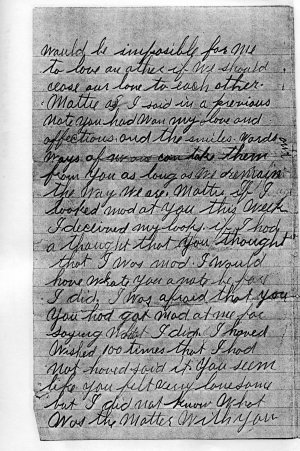 would be imposible for me
to love an other if we should
cease our love to each other.
Mattie as I said in a previous
note you had won my love and
affections and the smiles words
ways of no one can take them
from you as long as we remain
the way we are. Mattie If I
looked mad at you this week
I deceived my looks if I had
a thought that you thought
that I was mad I would
have wrote you a note before
I did, I was afraid that you
you had got mad at me for
saying what I did. I haved
wished 100 times that I had
not haved said it. You seem
like you felt very lonesome
but I did not know what
was the matter with you